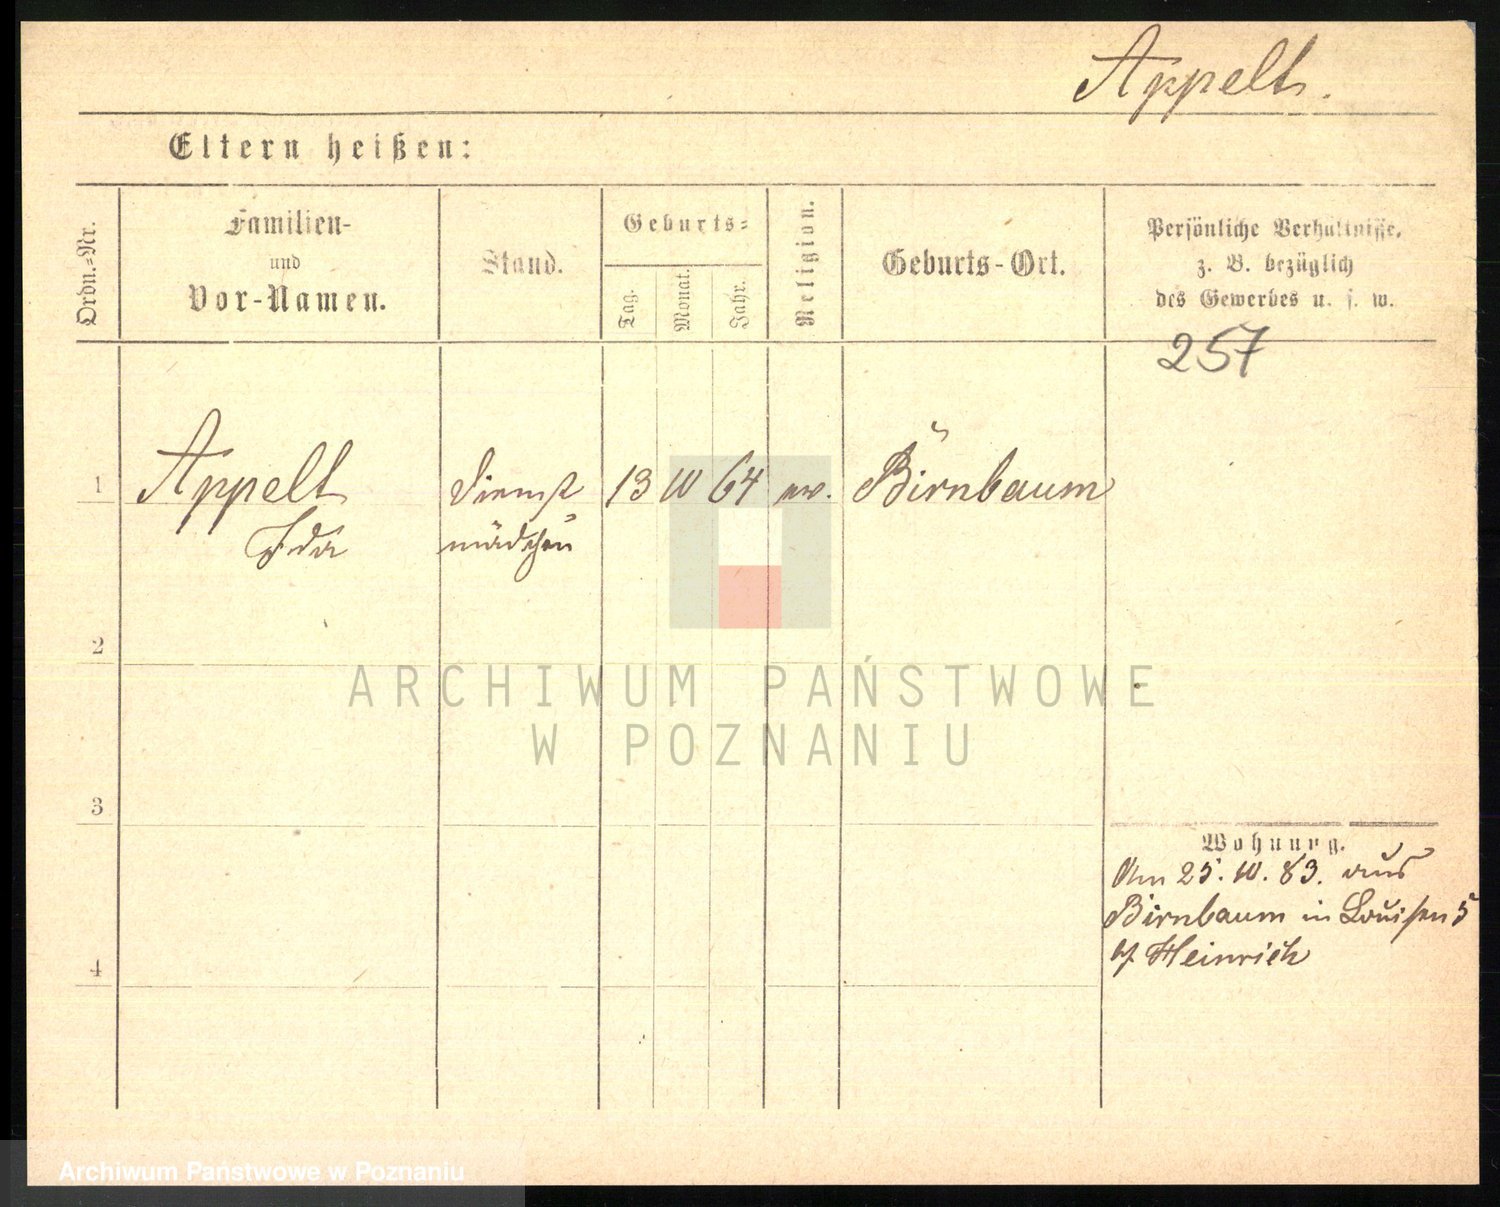 Appelt.
Eltern heißen:
Ordn.-Nr.
Familien-
und
Vor-Namen.
Stand.
Geburts-
Tag.
Monat.
Jahr.
Religion.
Geburts-Ort.
Persönliche Verhältnisse,
z. B. bezüglich
des Gewerbes u. s. w.
257
1 Appelt Dienst 13 10 64 ev. Birnbaum
Ida mädchen
2
ARCHIWUM PAŃSTWOWE
W POZNANIU
3
Wohnung.
Am 25. 10. 83. aus
Birnbaum in Louisen 5
bei Heinrich
4
Archiwum Państwowe w Poznaniu